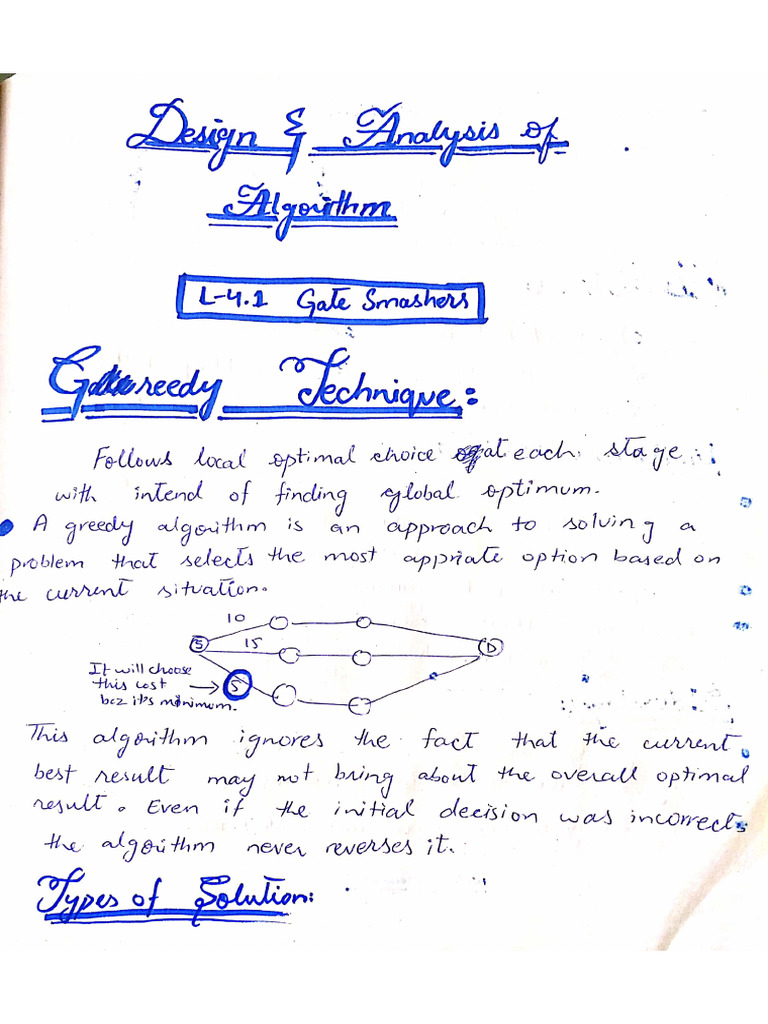 Design & Analysis of
Algorithm
L-4.1 Gate Smashers
Greedy Technique:
Follows local optimal choice at each stage
with intend of finding global optimum.
A greedy algorithm is an approach to solving a
problem that selects the most appriate option based on
the current situation.
10
S 15 D
It will choose
this cost → 5
bcz it's minimum.
This algorithm ignores the fact that the current
best result may not bring about the overall optimal
result. Even if the initial decision was incorrect
the algorithm never reverses it.
Types of Solution: